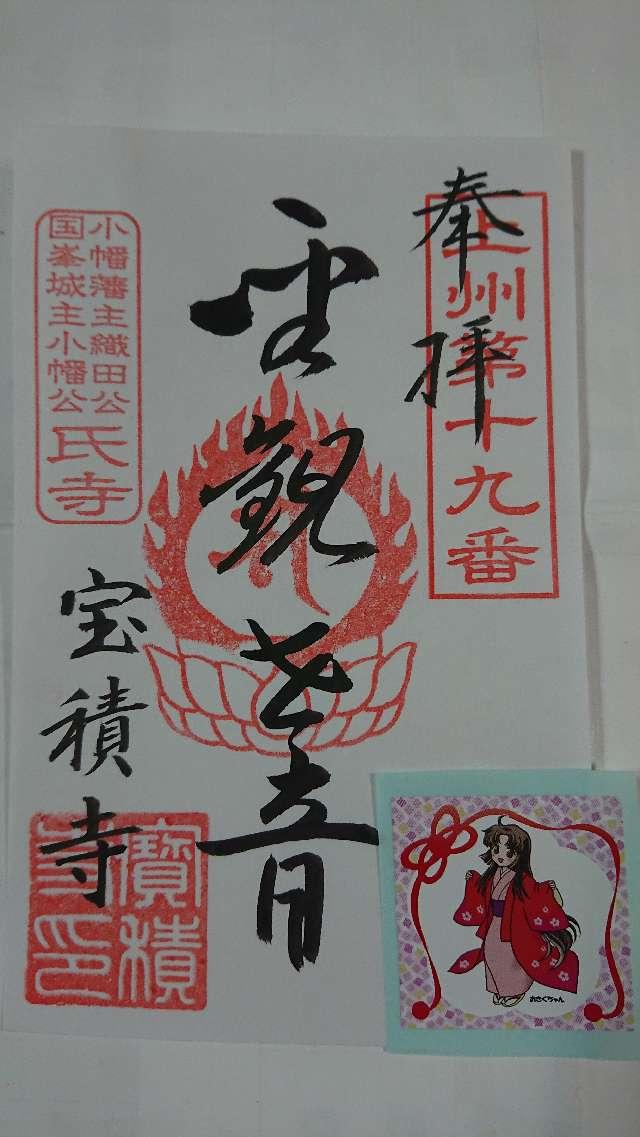 奉拝
上州第十九番
聖観世音
小幡藩主織田公
国峯城主小幡公
氏寺
宝積寺
寶積
寺印
おきくちゃん